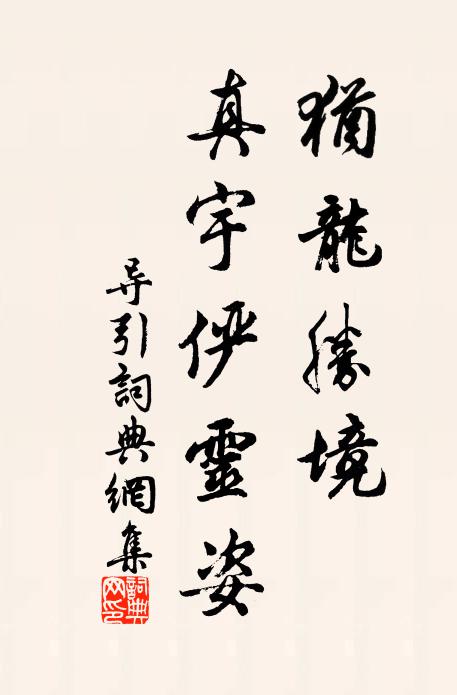 猶龍勝境
真宇俨靈姿
导引詞典網集
詞典
网印